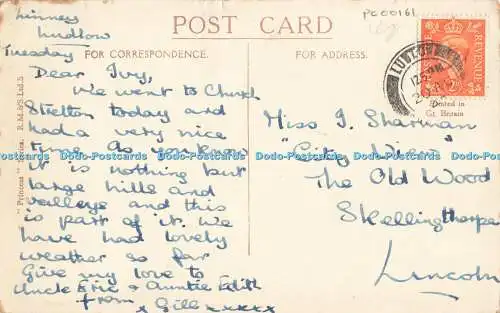 Linney
Ludlow
Tuesday
POST CARD
PC00161
FOR CORRESPONDENCE.
FOR ADDRESS.
Dear Ivy,
We went to Church
Stretton today and
had a very nice
time. As you know
it is nothing but
large hills and
valleys and this
is part of it. We
have had lovely
weather so far
Give my love to
Uncle Eric & Auntie Edith
from
x Gill xxxxx
"Princess" Series. R.M.&S. Ltd.S
LUDLOW
REVENUE
Printed in
Gt. Britain
Miss I. Sharman
"City View"
The Old Wood
Skellingthorpe
Lincoln
Dodo-Postcards Dodo-Postcards Dodo-Postcards Dodo-Postcards Dodo-Postcards Dodo-Postcards